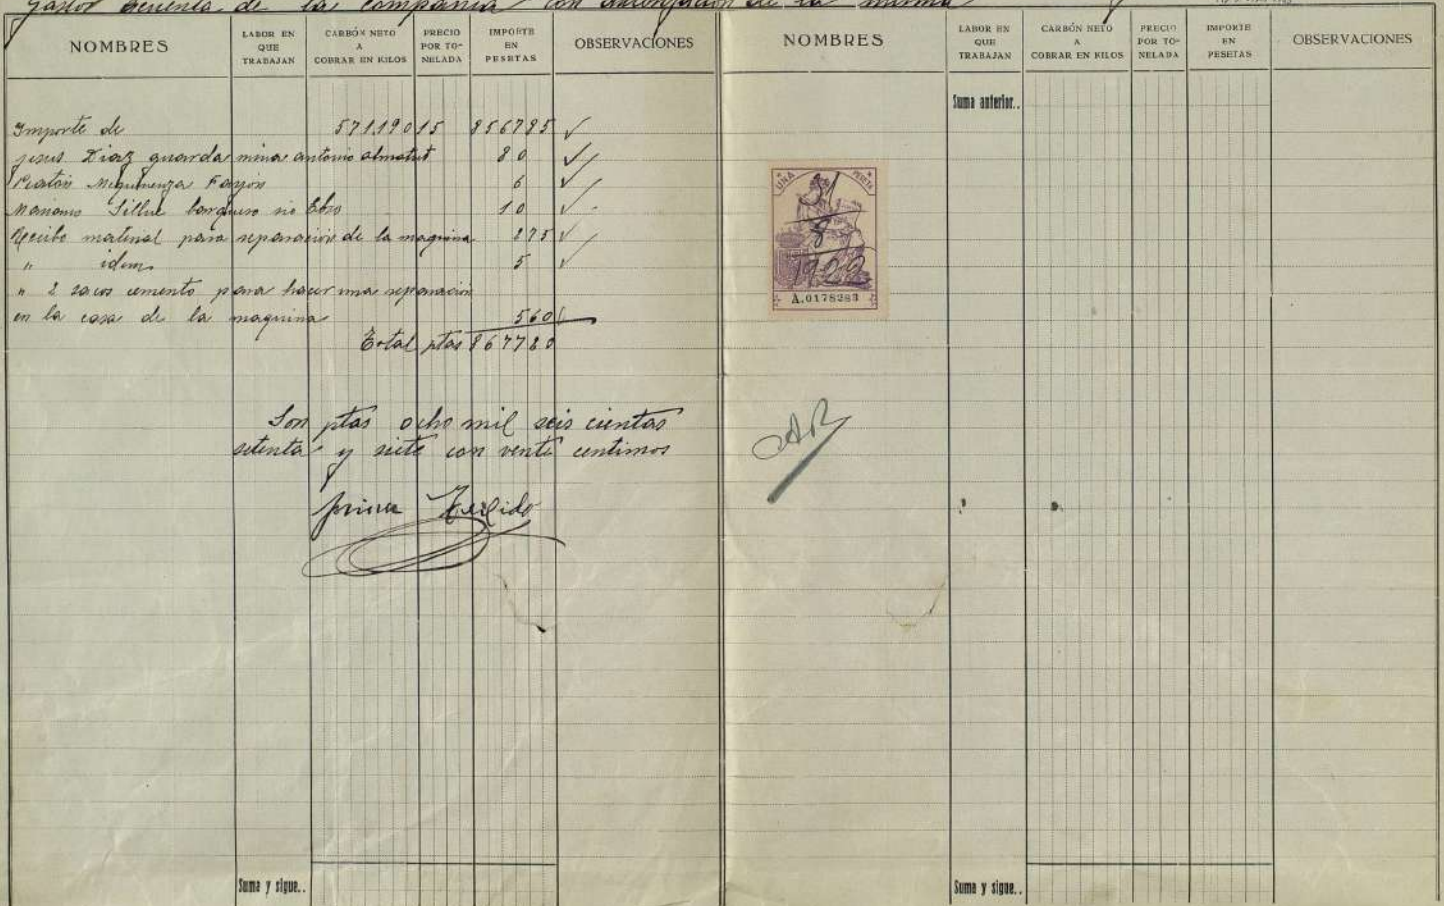 Gastos acuenta de la compañia con autorizacion de la misma
NOMBRES LABOR EN QUE TRABAJAN CARBÓN NETO A COBRAR EN KILOS PRECIO POR TONELADA IMPORTE EN PESETAS OBSERVACIONES
Importe de 571190 15 856785
Jesus Diaz guarda mina antonio 80
Peaton Mequinenza Fayon 6
Mariano Sillue barquero rio Ebro 10
Recibo material para reparacion de la maquina 875
" idem 5
" 2 sacos cemento para hacer una reparacion
en la casa de la maquina 560
Total ptas 867720
Son ptas ocho mil seis cientas
setenta y siete con vente centimos
NOMBRES LABOR EN QUE TRABAJAN CARBÓN NETO A COBRAR EN KILOS PRECIO POR TONELADA IMPORTE EN PESETAS OBSERVACIONES
Suma anterior..
UNA PESETA
8
1922
A.0178283
Suma y sigue..
Suma y sigue..